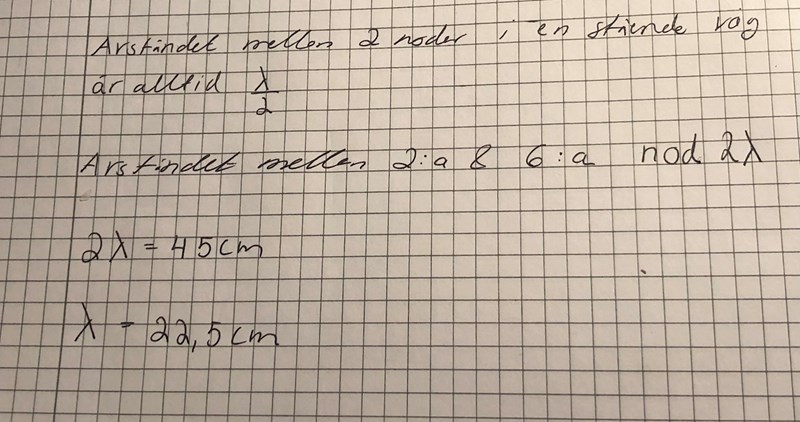 Avståndet mellan 2 noder i en stående våg
är alltid λ/2
Avståndet mellan 2:a & 6:a nod 2λ
2λ = 45cm
λ = 22,5cm